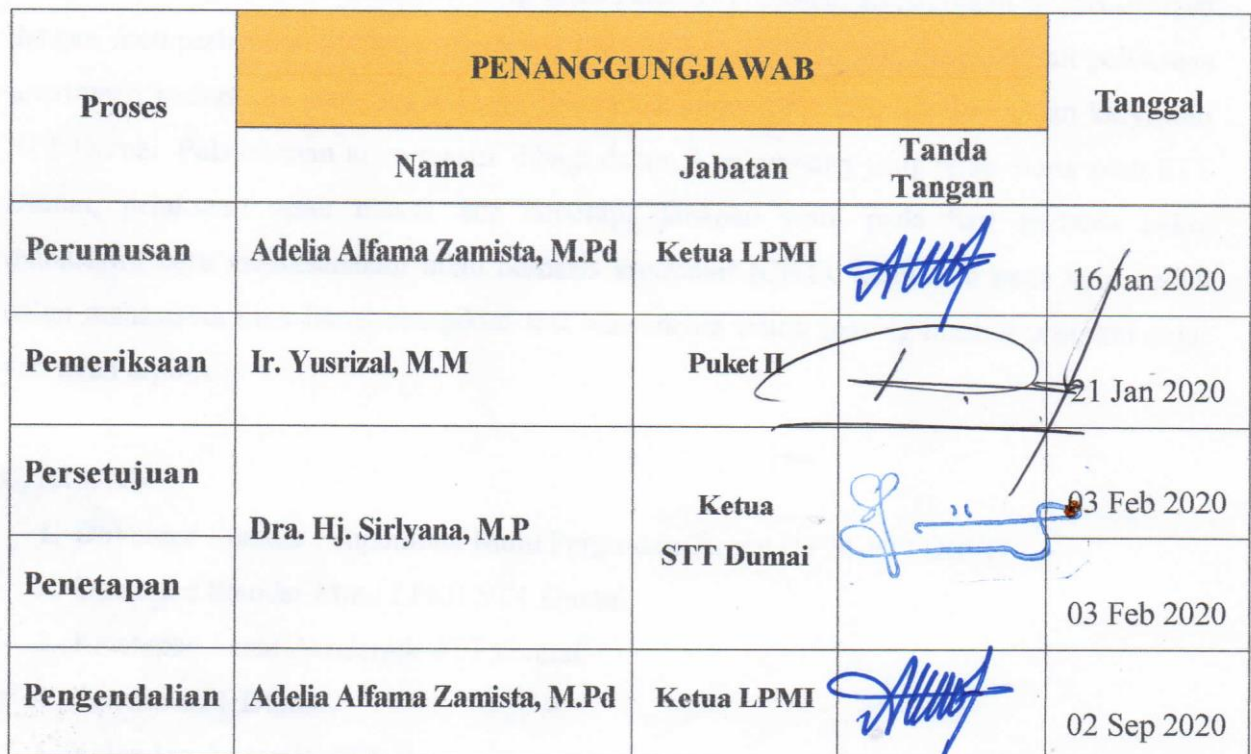 Proses
PENANGGUNGJAWAB
Tanggal
Nama
Jabatan
Tanda
Tangan
Perumusan Adelia Alfama Zamista, M.Pd Ketua LPMI 16 Jan 2020
Pemeriksaan Ir. Yusrizal, M.M Puket II 21 Jan 2020
Persetujuan 03 Feb 2020
Dra. Hj. Sirlyana, M.P Ketua
STT Dumai
Penetapan 03 Feb 2020
Pengendalian Adelia Alfama Zamista, M.Pd Ketua LPMI 02 Sep 2020